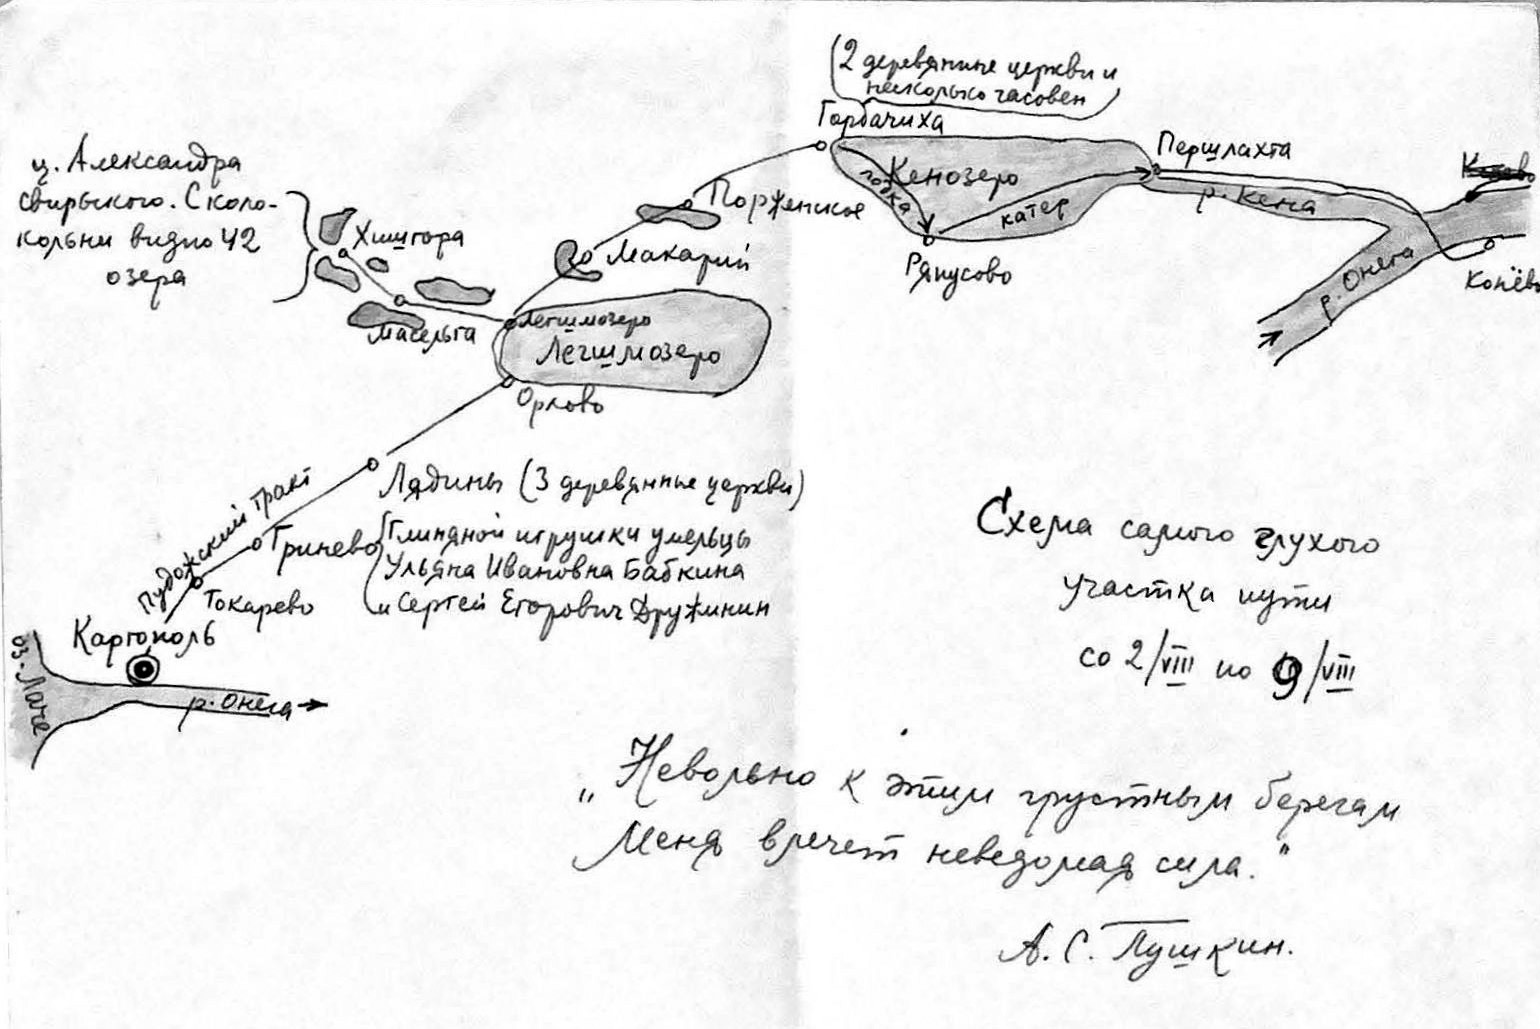 (2 деревянные церкви и
несколько часовен)
Горбачиха
Першлахта
ц. Александра
свирьского. С коло-
кольни видно 42
озера
Хижгора
Масельга
Порженское
Макарий
Кенозеро
лодка
катер
р. Кена
Ряпусово
р. Онега
Конёво
Легшмозеро
Легшмозеро
Орлово
Лядины (3 деревянные церкви)
Пудожский тракт
Гринево
Глиняной игрушки умельцы
Ульяна Ивановна Бабкина
и Сергей Егорович Дружинин
Токарево
Каргополь
оз. Лаче
р. Онега
Схема самого глухого
участка пути
со 2/VIII по 9/VIII
„Невольно к этим грустным берегам
Меня влечет неведомая сила."
А. С. Пушкин.